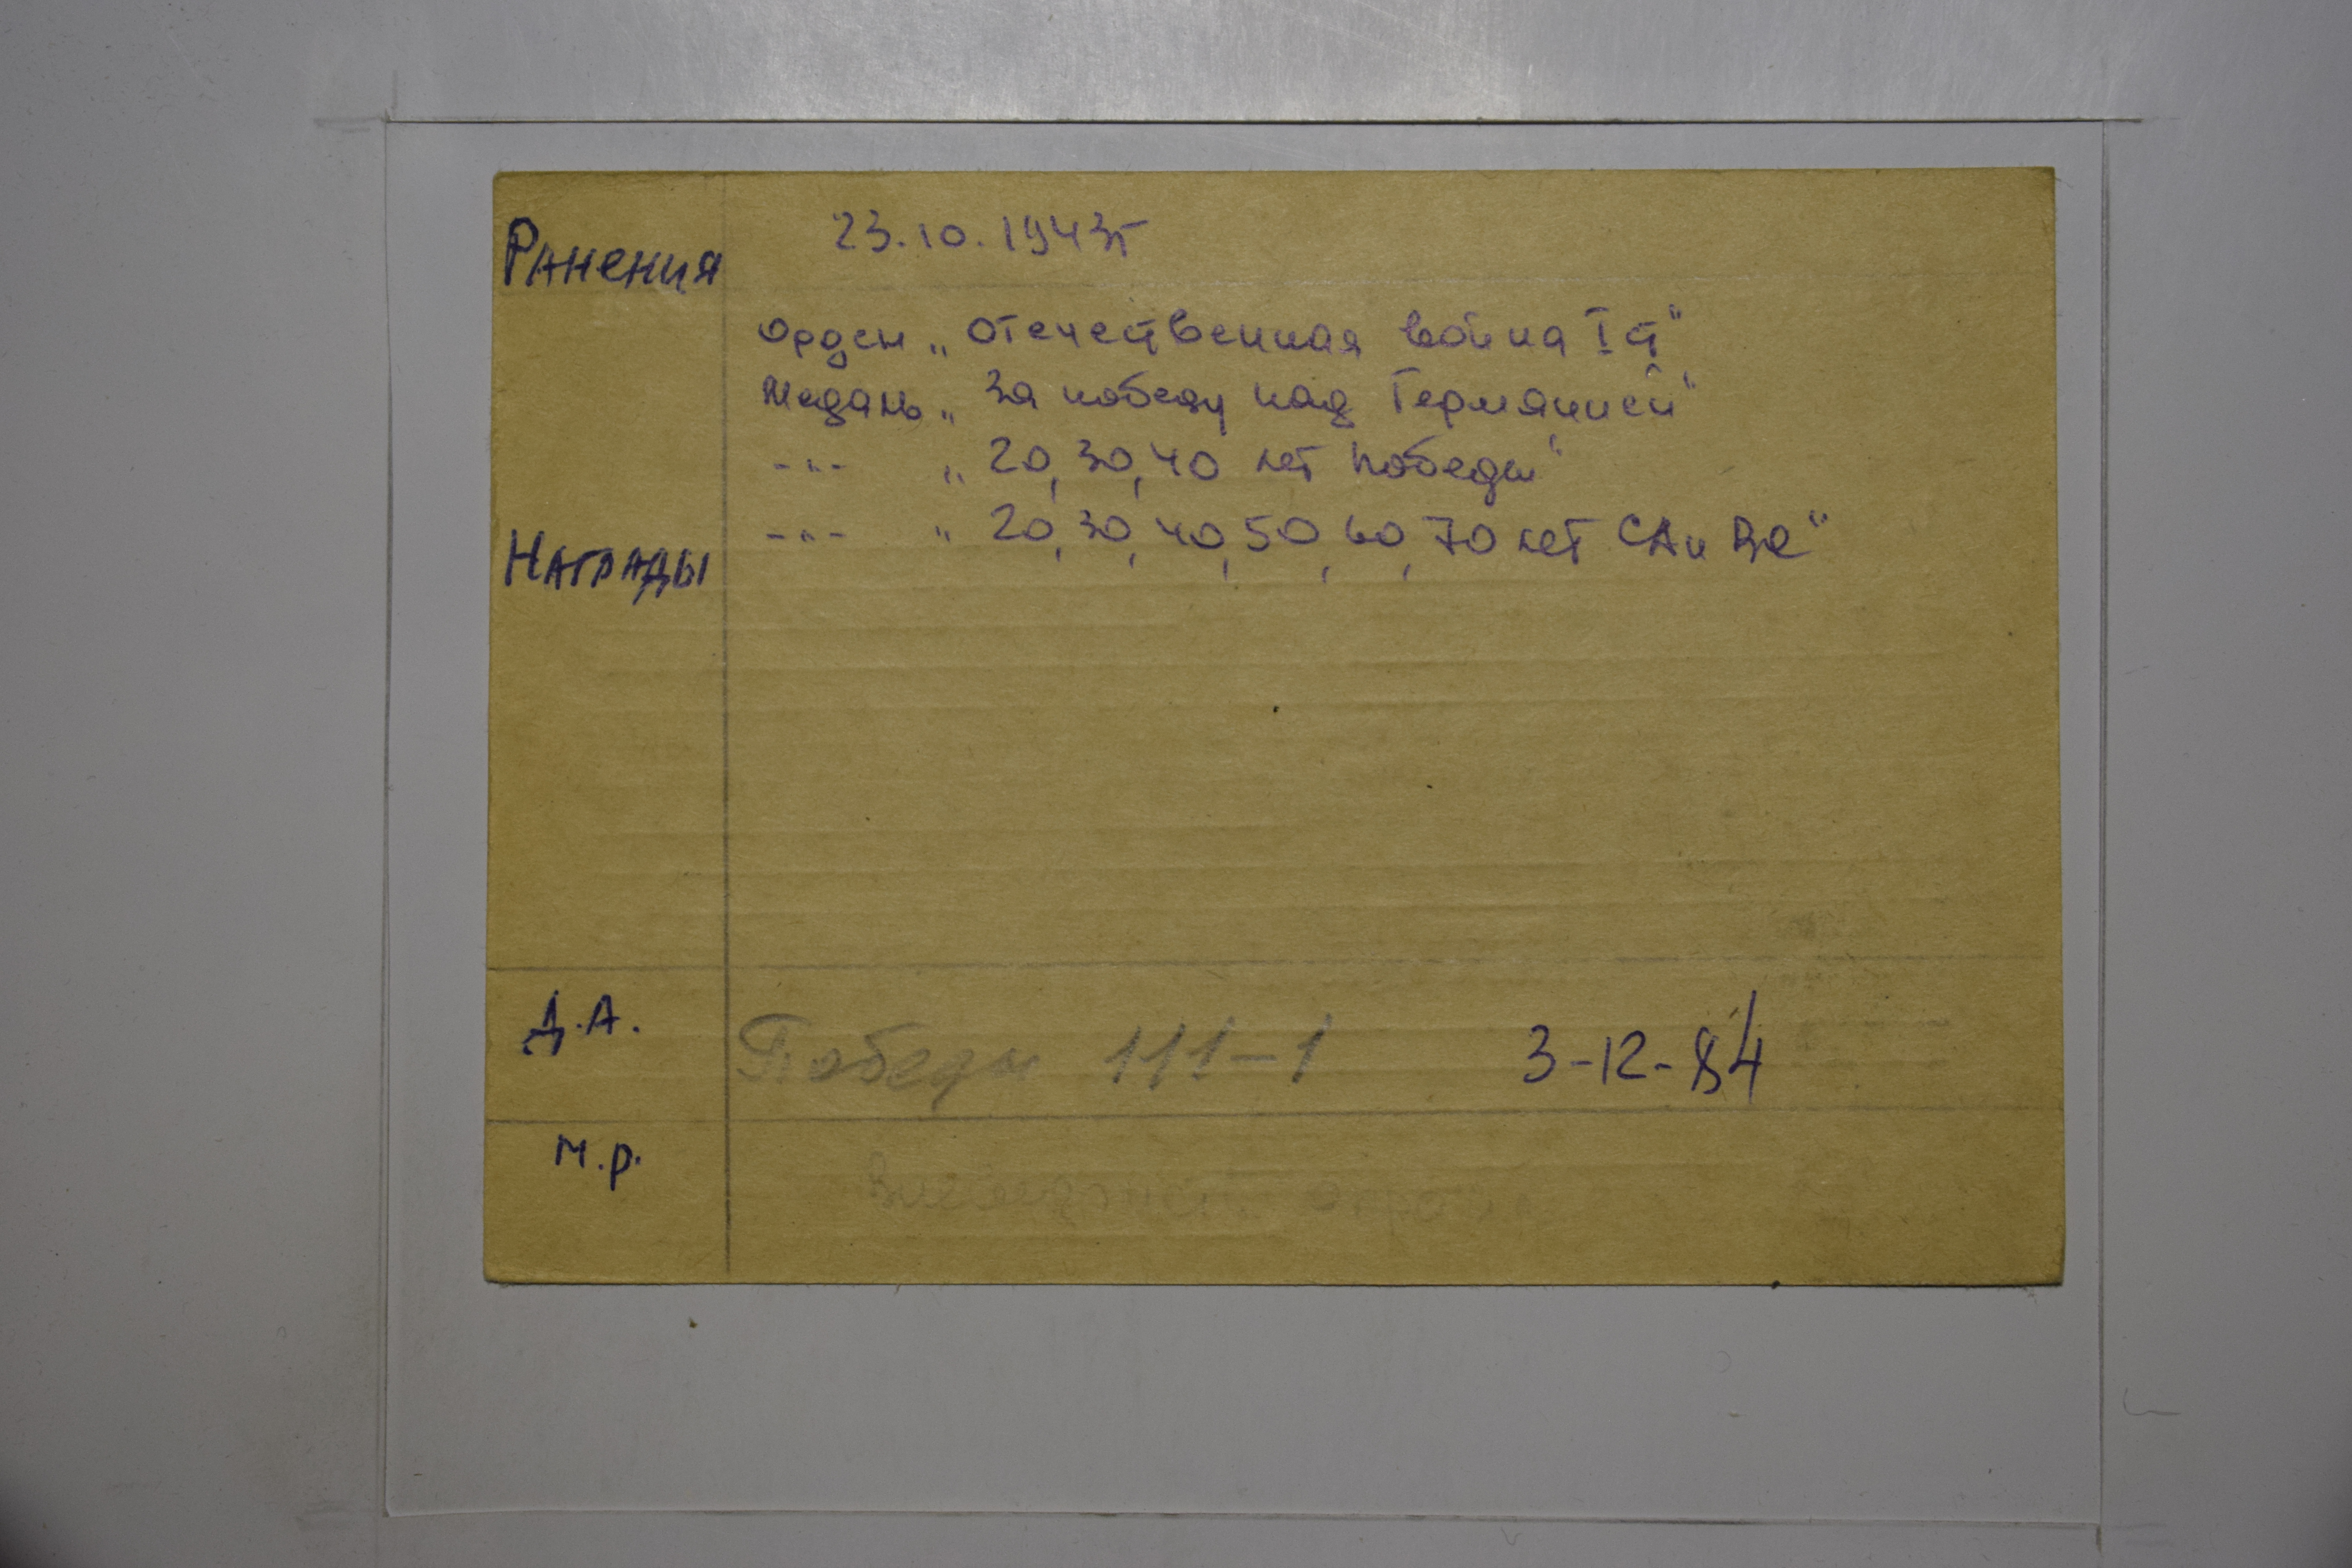 Ранения 23.10.1943г
Орден „Отечественная война I ст"
Медаль „За победу над Германией"
-"- „20, 30, 40 лет Победы"
Награды -"- „20, 30, 40, 50, 60, 70 лет СА и ВС"
Д.А. Победы 111-1 3-12-84
М.р.